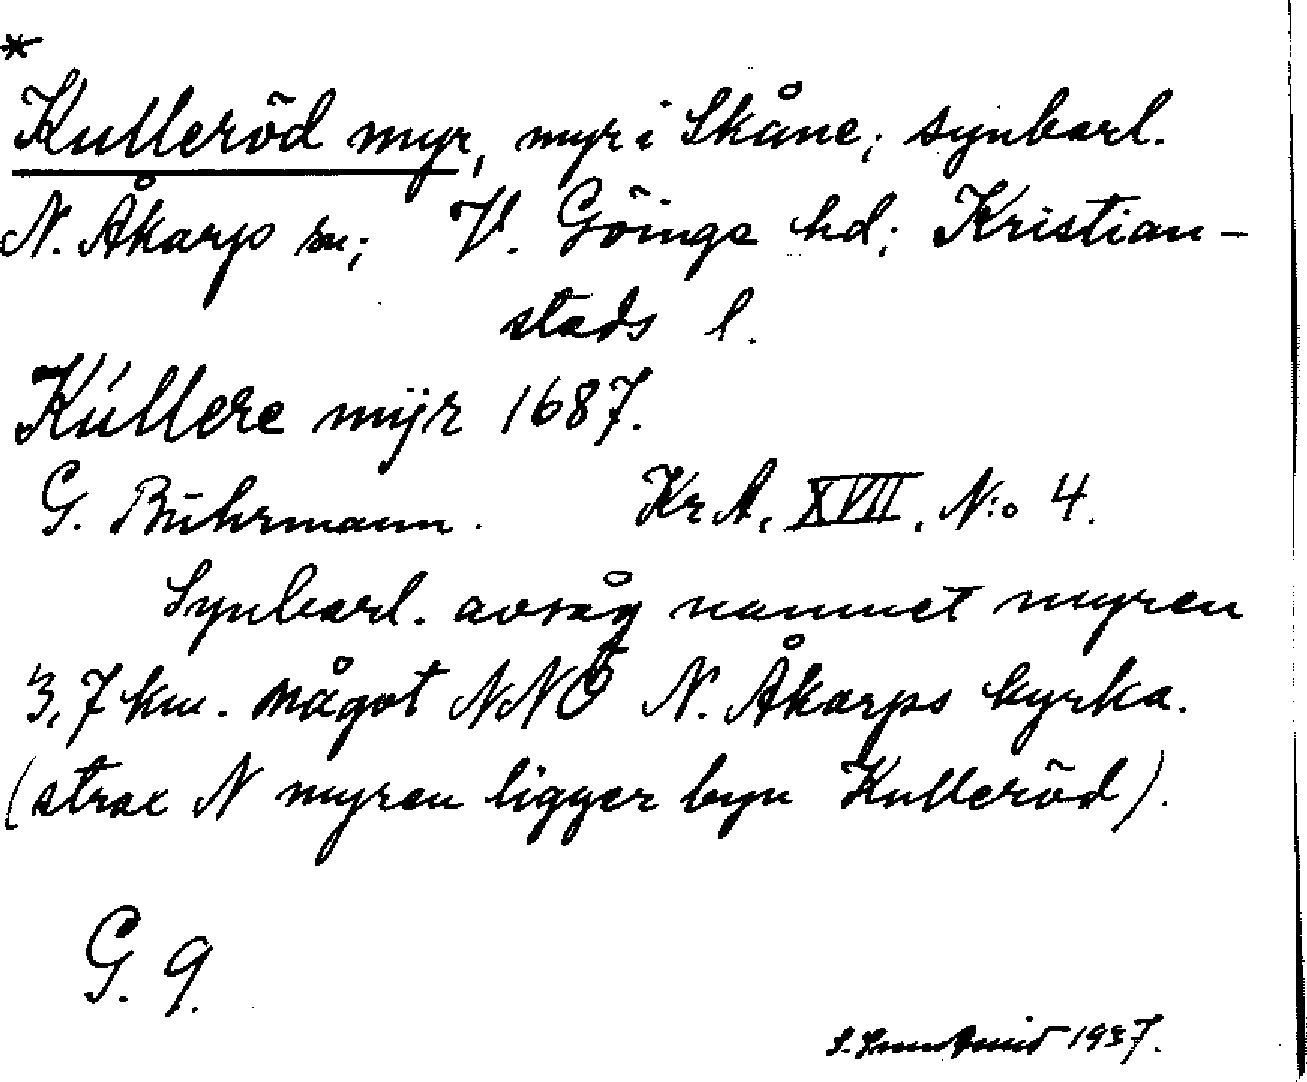 *
Kulleröd myr, myr i Skåne; synbarl.
N. Åkarps sn; V. Göinge hd; Kristian-
stads l.
Kúllere mÿr 1687.
G. Bührmann. Kr A, XVII, N:o 4.
Synbarl. avsåg namnet myren
3,7 km. något NNO N. Åkarps kyrka.
(strax N myren ligger byn Kulleröd).
G. 9.
1937.